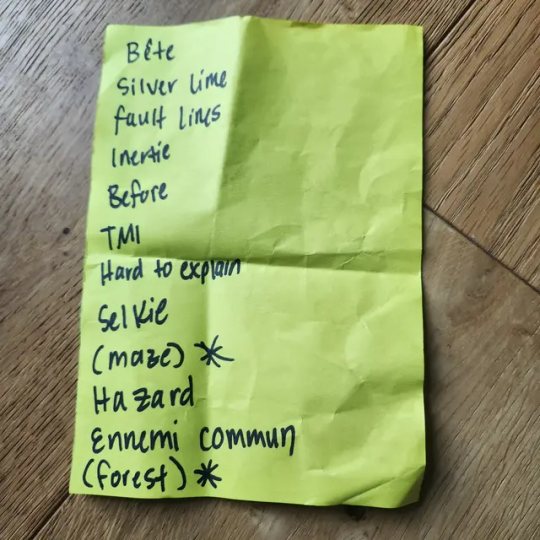 Bête
Silver lime
fault lines
Inertie
Before
TMI
Hard to explain
Selkie
(maze) *
Hazard
Ennemi commun
(forest) *